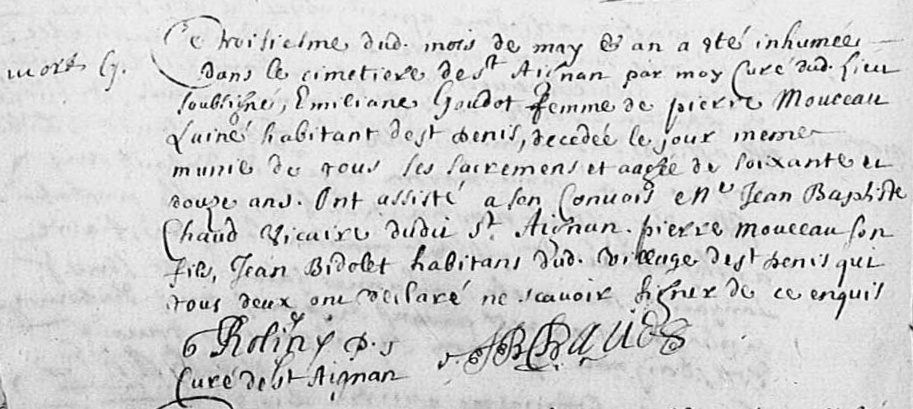 Ce troisiesme dud. mois de may & an a esté inhumée
mort
dans le cimetiere de st Aignan par moy Curé dud. lieu
soubsigné, Emiliane Goudot femme de pierre Mouceau
Lainé habitant de st Denis, decedée le jour meme
munie de tous les sacremens et aagée de soixante et
douze ans. Ont assisté a son Convois Jean Baptiste
Chaud Vicaire dudit St. Aignan. pierre mouceau son
fils, Jean Bidolet habitans dud. village de st Denis qui
tous deux ont declaré ne scavoir signer de ce enquis
JB Chaud
Curé de st Aignan